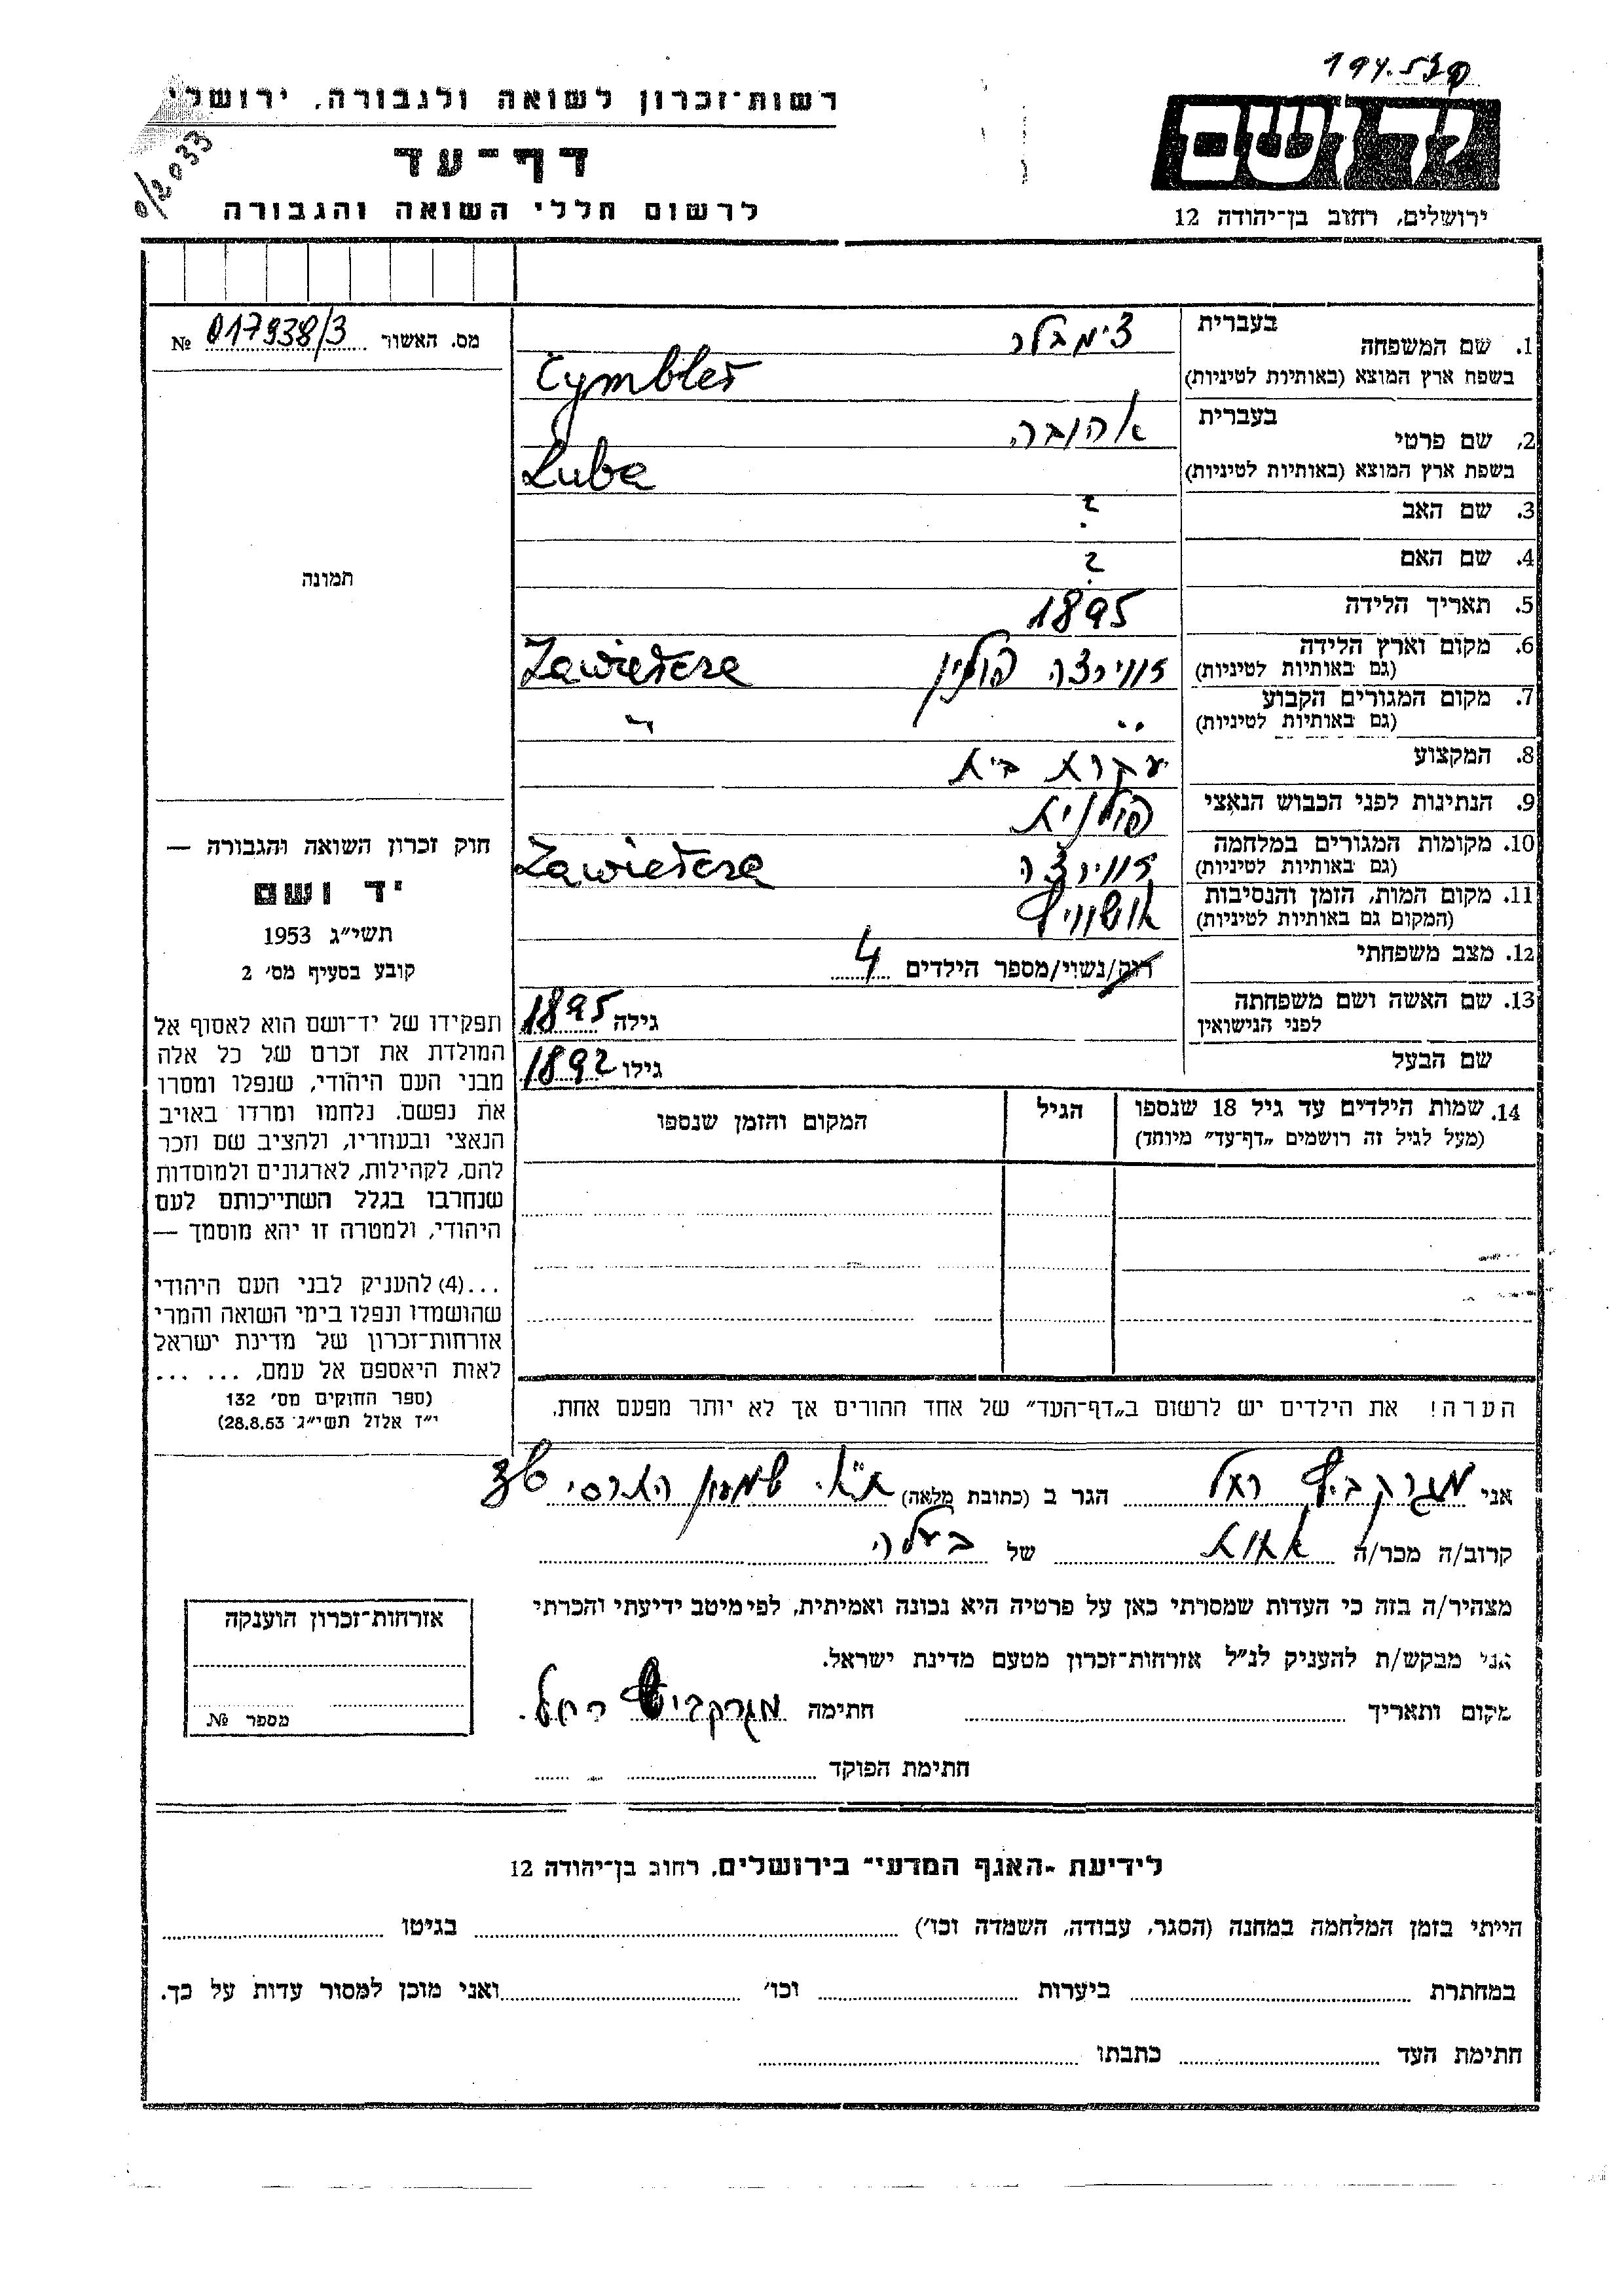 רשות-זכרון לשואה ולגבורה, ירושלי
דף-עד
לרשום חללי השואה והגבורה
0/2033
יד ושם
ירושלים, רחוב בן-יהודה 12
מס. האשור 017938/3 №
תמונה
1. שם המשפחה בעברית צימבלר
בשפת ארץ המוצא (באותיות לטיניות) Cymbler
2. שם פרטי בעברית אהובה
בשפת ארץ המוצא (באותיות לטיניות) Luba
3. שם האב ?
4. שם האם ?
5. תאריך הלידה 1895
6. מקום וארץ הלידה (גם באותיות לטיניות) זווירצה פולין Zawierże
7. מקום המגורים הקבוע (גם באותיות לטיניות) " "
8. המקצוע עקרת בית
9. הנתינות לפני הכבוש הנאצי פולנית
10. מקומות המגורים במלחמה (גם באותיות לטיניות) זווירצה
11. מקום המות, הזמן והנסיבות (המקום גם באותיות לטיניות) אושוויץ
12. מצב משפחתי רווק/נשוי/מספר הילדים 4
13. שם האשה ושם משפחתה לפני הנישואין גילה 1895
שם הבעל גילו 1892
14. שמות הילדים עד גיל 18 שנספו (מעל לגיל זה רושמים „דף-עד" מיוחד) הגיל המקום והזמן שנספו
חוק זכרון השואה והגבורה —
יד ושם
תשי"ג 1953
קובע בסעיף מס' 2
תפקידו של יד-ושם הוא לאסוף אל
המולדת את זכרם של כל אלה
מבני העם היהודי, שנפלו ומסרו
את נפשם, נלחמו ומרדו באויב
הנאצי ובעוזריו, ולהציב שם וזכר
להם, לקהילות, לארגונים ולמוסדות
שנחרבו בגלל השתייכותם לעם
היהודי, ולמטרה זו יהא מוסמך —
...(4) להעניק לבני העם היהודי
שהושמדו ונפלו בימי השואה והמרי
אזרחות-זכרון של מדינת ישראל
לאות היאספם אל עמם, ... ...
(ספר החוקים מס' 132
י"ז אלול תשי"ג 28.8.53)
הערה! את הילדים יש לרשום ב„דף-העד" של אחד ההורים אך לא יותר מפעם אחת.
אני הגר ב (כתובת מלאה) ת"א.
קרוב/ה מכר/ה אחות של בעלה
מצהיר/ה בזה כי העדות שמסרתי כאן על פרטיה היא נכונה ואמיתית, לפי מיטב ידיעתי והכרתי
אני מבקש/ת להעניק לנ"ל אזרחות-זכרון מטעם מדינת ישראל.
מקום ותאריך חתימה
חתימת הפוקד
אזרחות-זכרון הוענקה
מספר №
לידיעת „האגף המדעי" בירושלים, רחוב בן-יהודה 12
הייתי בזמן המלחמה במחנה (הסגר, עבודה, השמדה וכו') בגיטו
במחתרת ביערות וכו' ואני מוכן למסור עדות על כך.
חתימת העד כתבתו